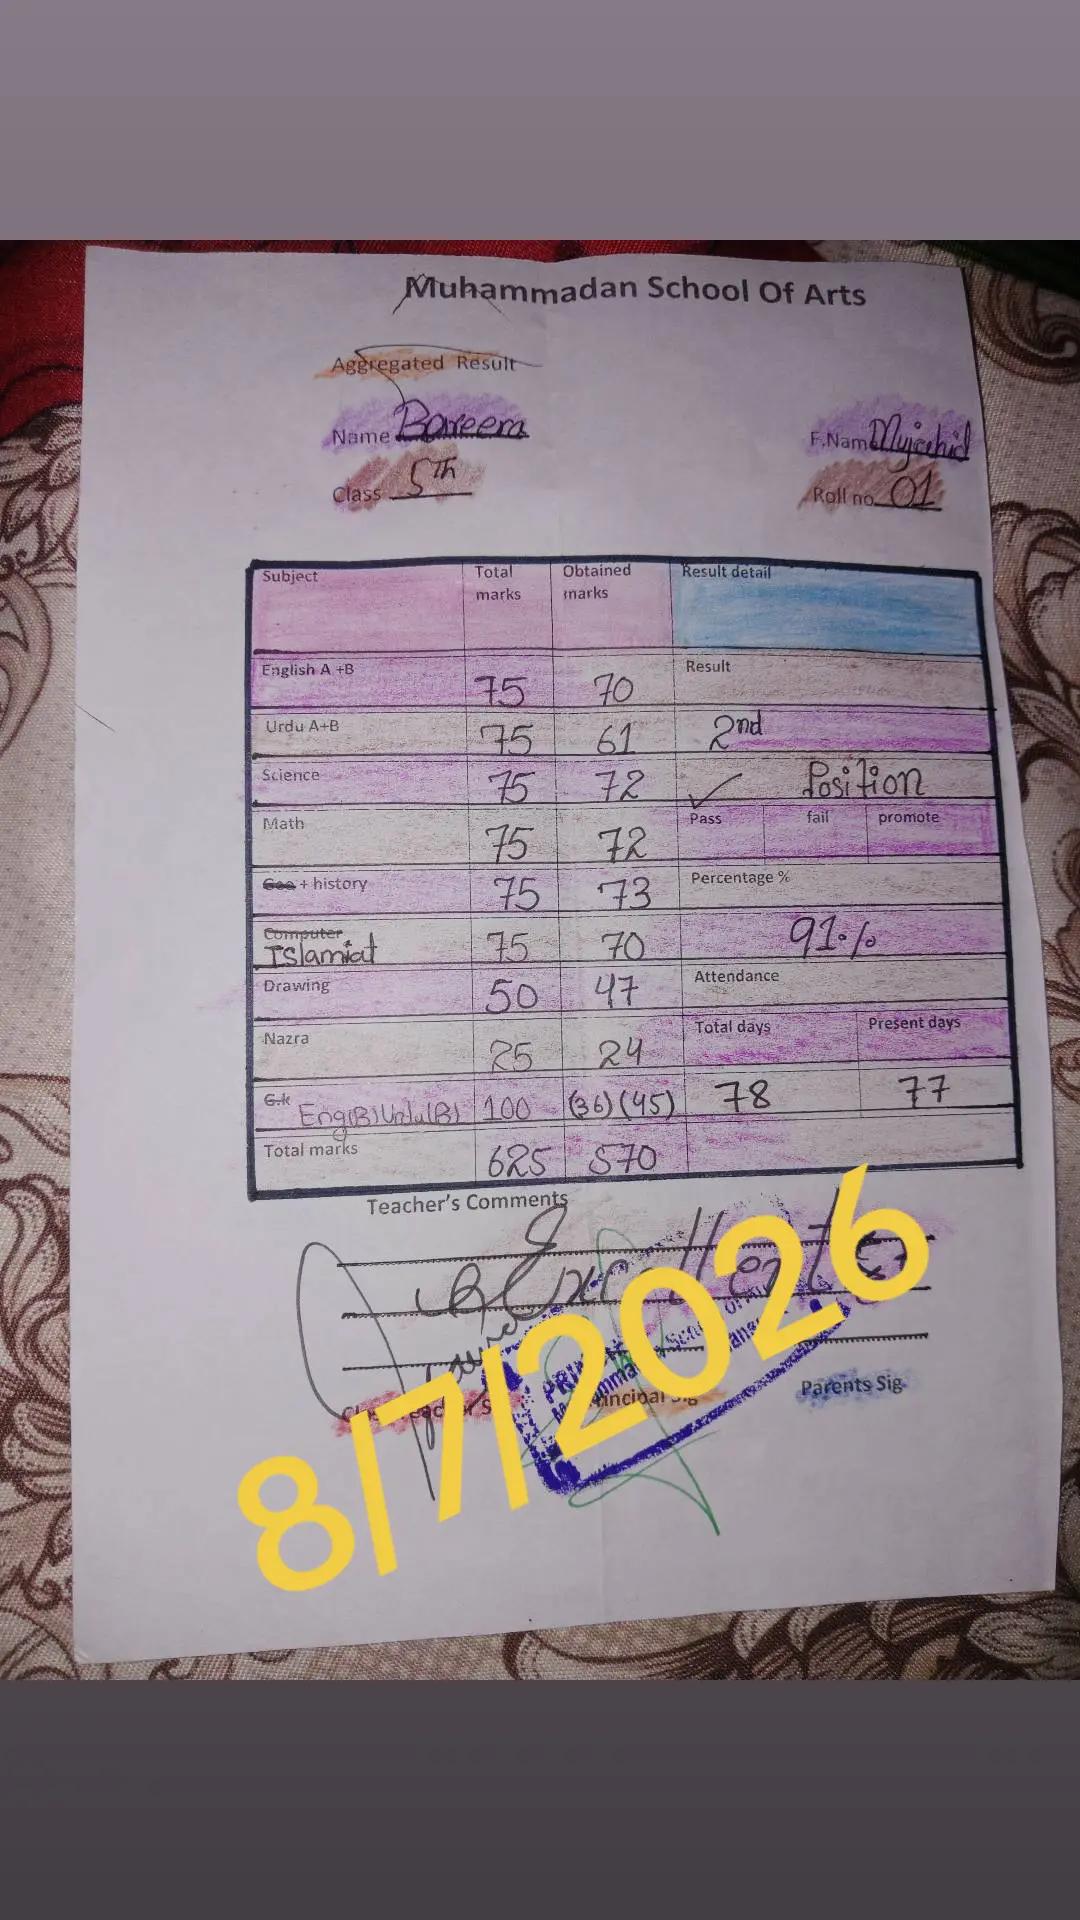 Muhammadan School Of Arts
Aggregated Result
Name Bareera F.Name Mujahid
Class 5th Roll no 01
Subject Total marks Obtained marks Result detail
English A +B 75 70 Result
Urdu A+B 75 61 2nd
Science 75 72 ✓ Position
Math 75 72 Pass fail promote
Geo + history 75 73 Percentage %
Computer
Islamiat 75 70 91%
Drawing 50 47 Attendance
Nazra 25 24 Total days Present days
G.k Eng(B)Urdu(B) 100 (36)(45) 78 77
Total marks 625 570
Teacher's Comments
Excellent
Principal Sig Parents Sig
8/7/2026